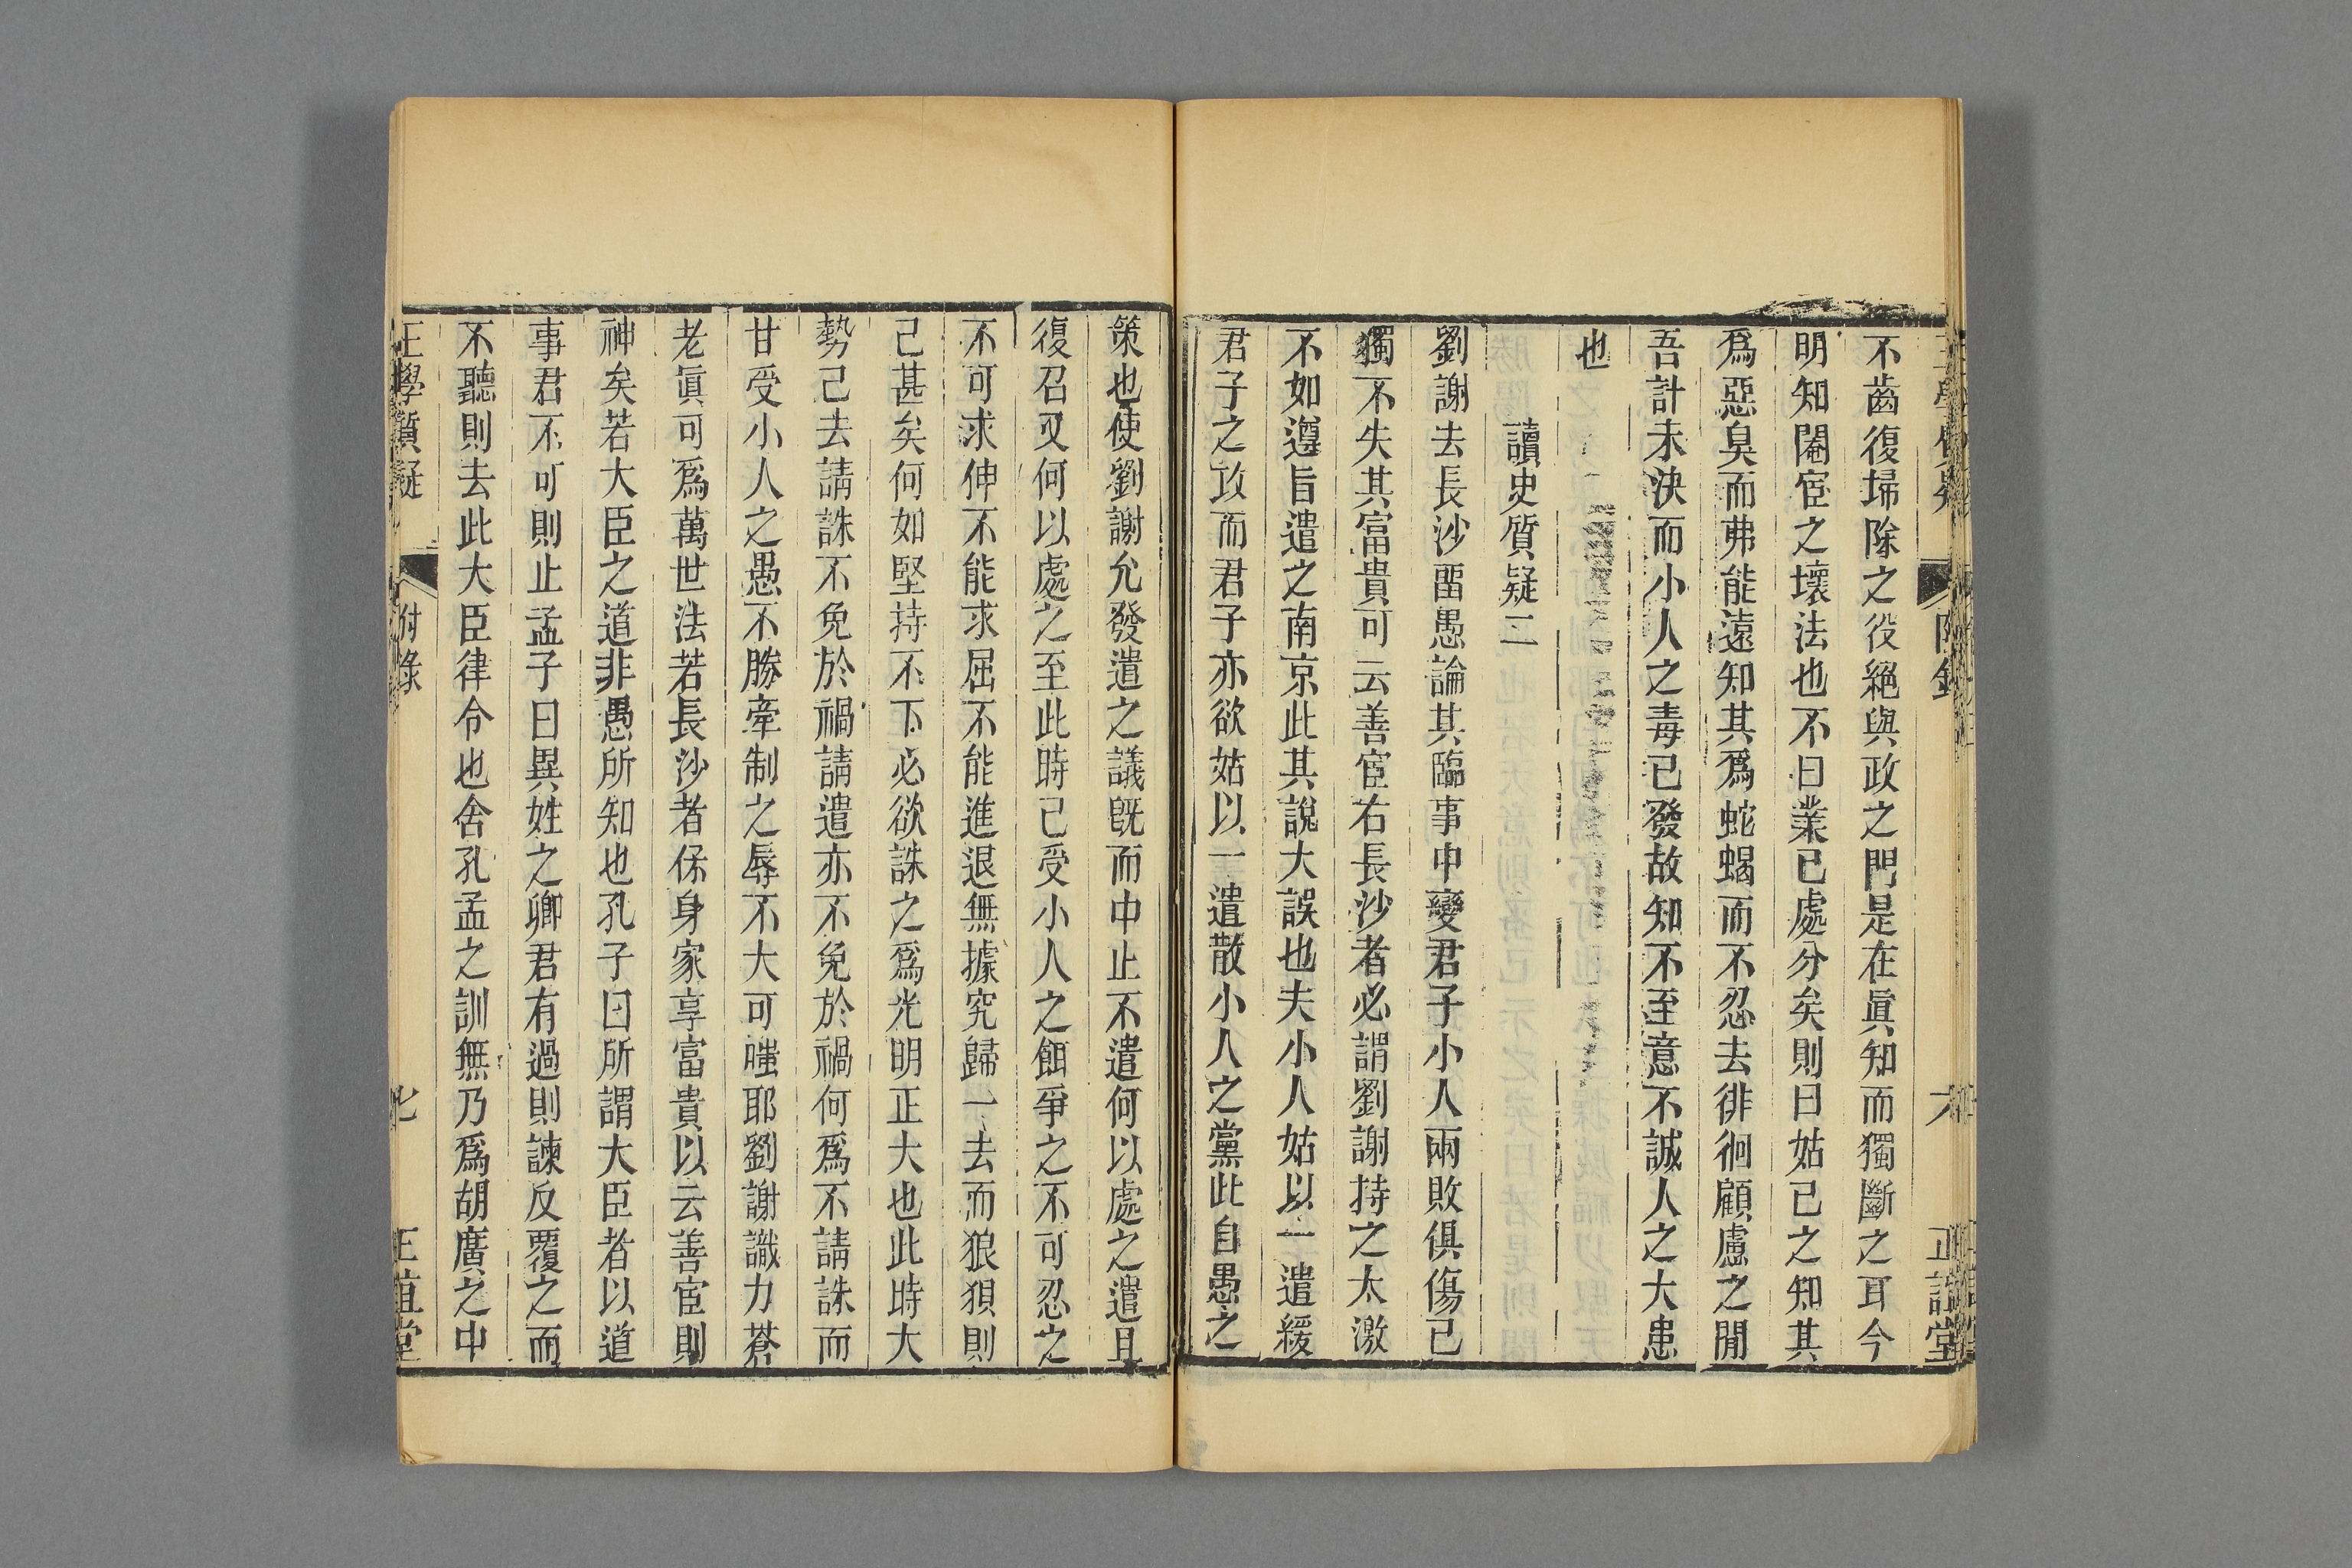 不齒復埽除之役絕與政之門是在眞知而獨斷之耳今
明知閹宦之壞法也不曰業已處分矣則曰姑已之知其
爲惡臭而弗能遠知其爲蛇蝎而不忍去徘徊顧慮之閒
吾計未決而小人之毒已發故知不至意不誠人之大患
也
讀史質疑二
劉謝去長沙畱愚論其臨事中變君子小人兩敗俱傷已
獨不失其富貴可云善宦右長沙者必謂劉謝持之太激
不如遵旨遣之南京此其說大誤也夫小人姑以一遣緩
君子之攻而君子亦欲姑以一遣散小人之黨此自愚之
策也使劉謝允發遣之議旣而中止不遣何以處之遣且
復召又何以處之至此時已受小人之餌爭之不可忍之
不可求伸不能求屈不能進退無據究歸一去而狼狽則
己甚矣何如堅持不下必欲誅之爲光明正大也此時大
勢已去請誅不免於禍請遣亦不免於禍何爲不請誅而
甘受小人之愚不勝牽制之辱不大可嗤耶劉謝識力蒼
老眞可爲萬世法若長沙者保身家享富貴以云善宦則
神矣若大臣之道非愚所知也孔子曰所謂大臣者以道
事君不可則止孟子曰異姓之卿君有過則諫反覆之而
不聽則去此大臣律令也舍孔孟之訓無乃爲胡廣之中
王學質疑 附錄 七 正誼堂